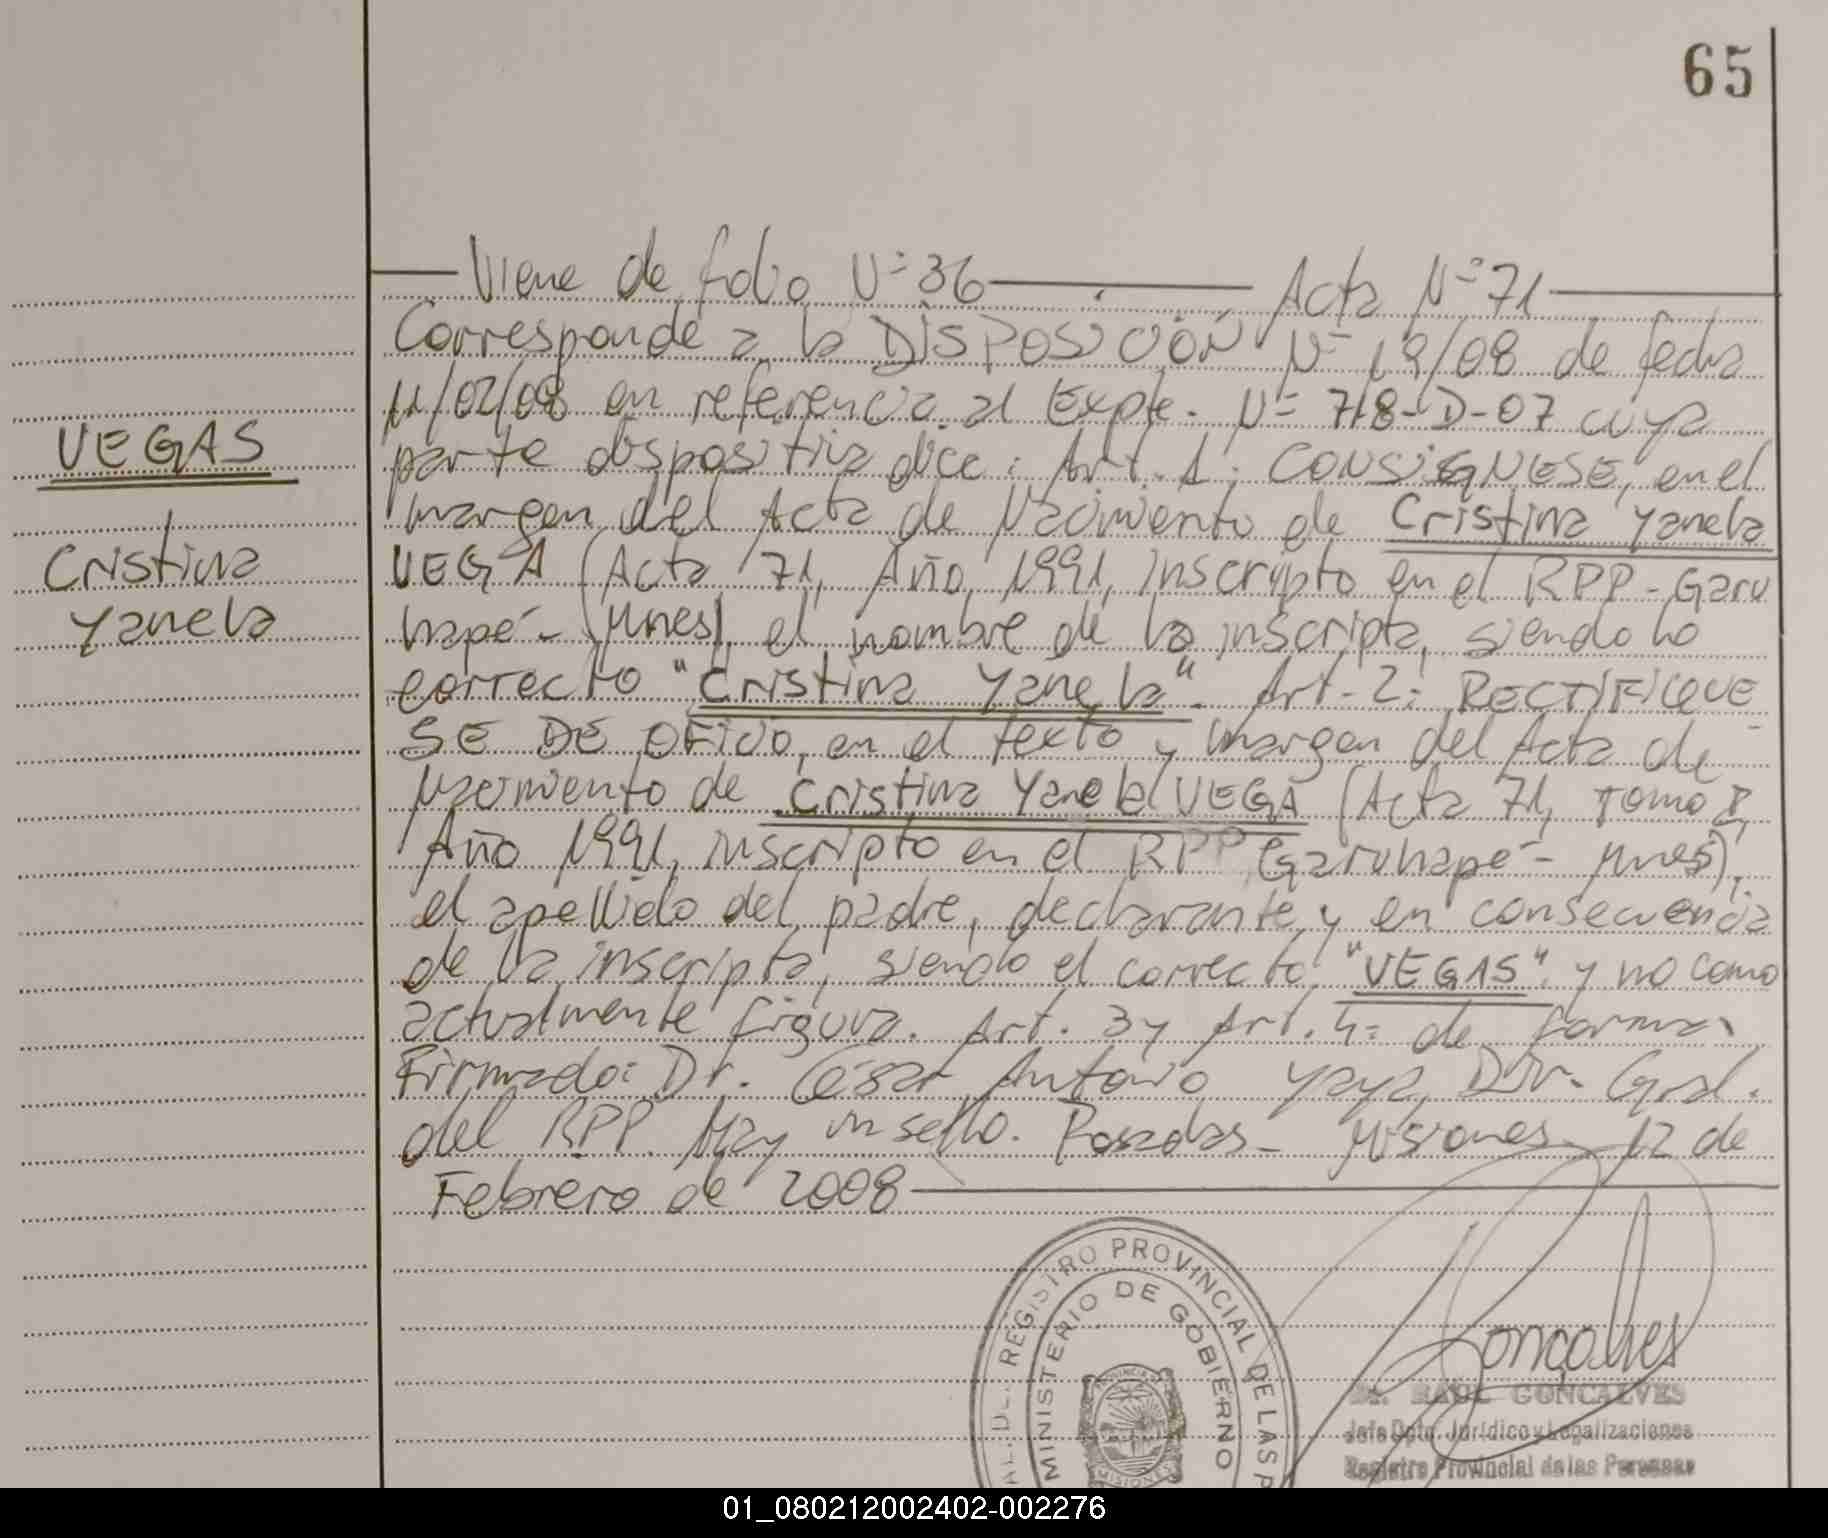 65
Viene de folio Nº 36 Acta Nº 71
Corresponde a la DISPOSICIÓN Nº 19/08 de fecha
11/02/08 en referencia al Expte. Nº 718-D-07 cuya
VEGAS
parte dispositiva dice: Art. 1: CONSIGNESE, en el
margen del Acta de Nacimiento de Cristina Yanela
Cristina
VEGA (Acta 71, Año 1991, inscripto en el RPP - Garu
Yanela
hapé - Mnes), el nombre de la inscripta, siendo lo
correcto "Cristina Yanela". Art. 2: RECTIFIQUE
SE DE OFICIO, en el texto y margen del Acta de
Nacimiento de Cristina Yanela VEGA (Acta 71, Tomo I,
Año 1991, inscripto en el RPP Garuhapé - Mnes),
el apellido del padre, declarante y en consecuencia
de la inscripta, siendo el correcto "VEGAS" y no como
actualmente figura. Art. 3 y Art. 4: de forma.
Firmado: Dr. César Antonio Yaya, Dir. Gral.
del RPP. Hay un sello. Posadas - Misiones 12 de
Febrero de 2008
REGISTRO PROVINCIAL DE LAS P
MINISTERIO DE GOBIERNO
MISIONES
Gonçalves
Dr. RAUL GONCALVES
Jefe Dpto. Jurídico y Legalizaciones
Registro Provincial de las Personas
01_080212002402-002276